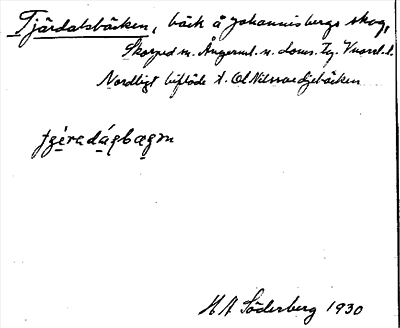 Tjärdalsbäcken, bäck å Johannisbergs skog,
Skorped sn. Ångerml. n. doms. Tg. Vnorrl. l.
Nordligt biflöde t. Ol Nilsaedjebäcken
H A Söderberg 1930